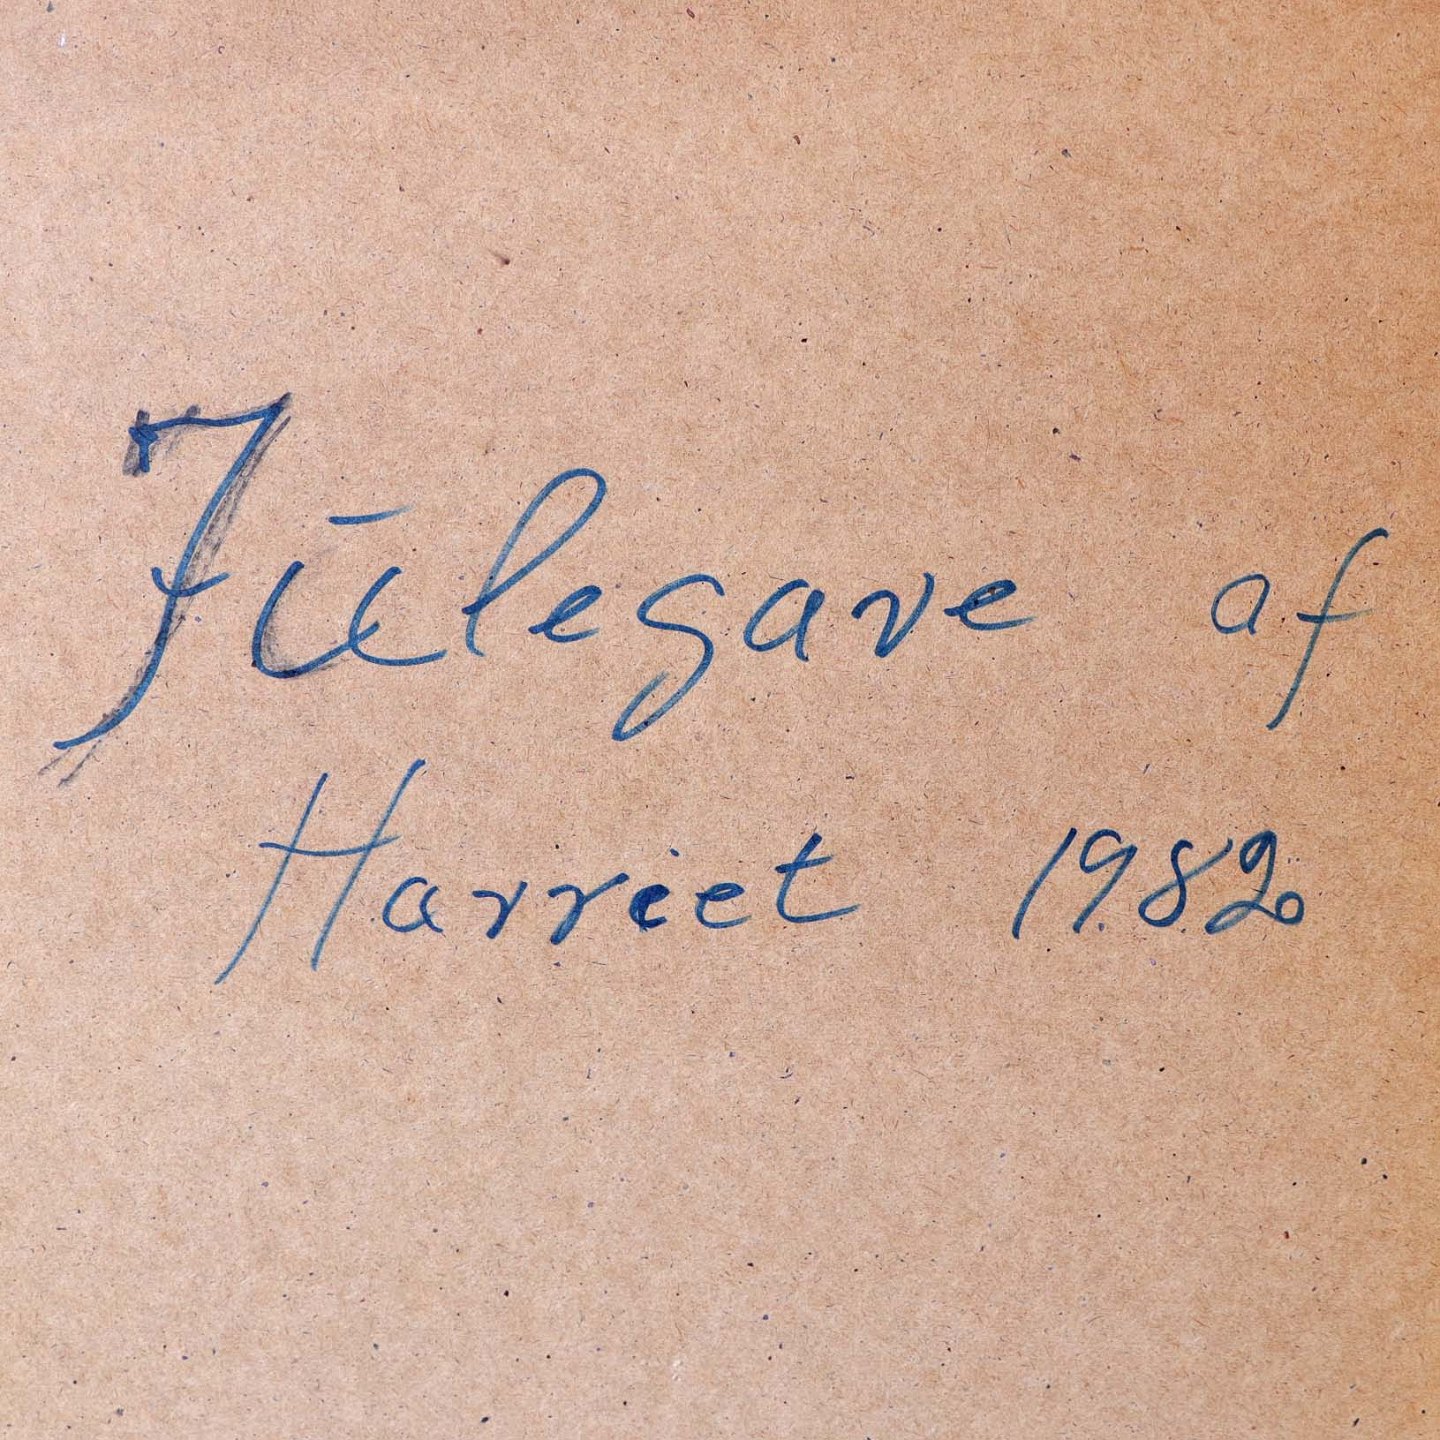 Jūlegave af
Harriet 1982